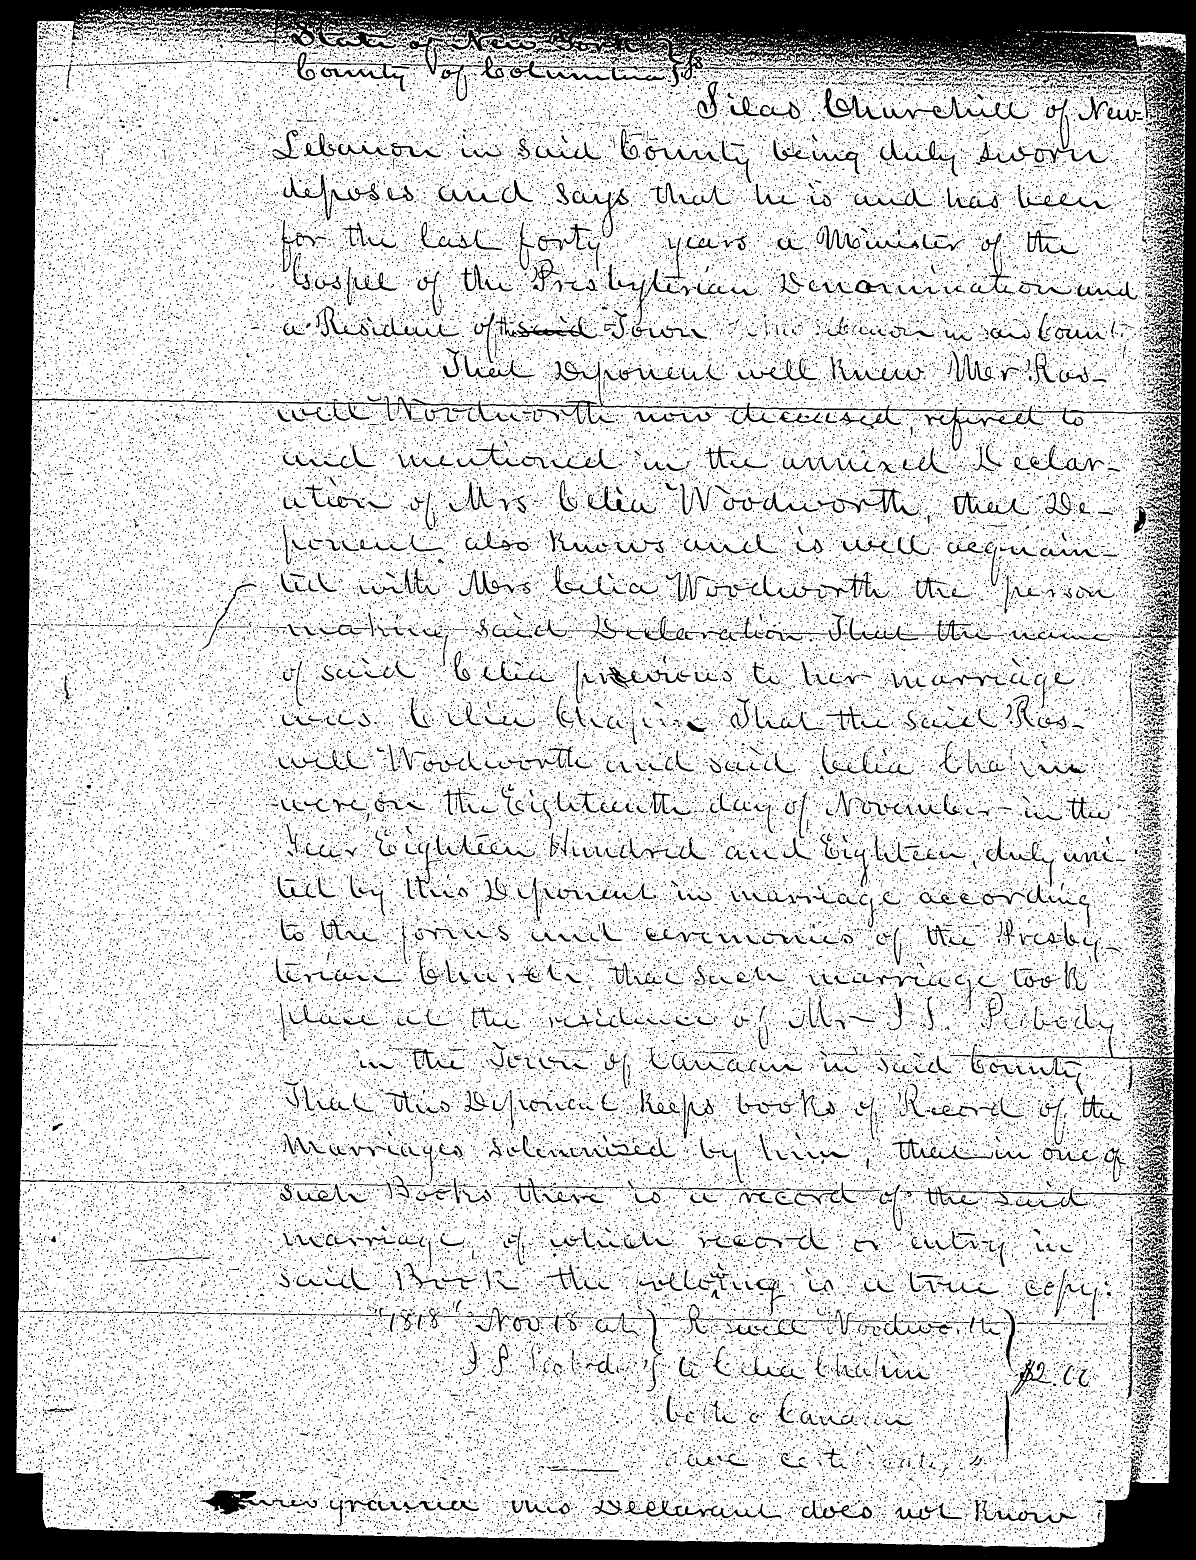 State of New York }
County of Columbia } ss
Silas Churchill of New
Lebanon in said County being duly sworn
deposes and says that he is and has been
for the last forty years a Minister of the
Gospel of the Presbyterian Denomination and
a Resident of the said Town of New Lebanon in said County,
That Deponent well knew Mr Ros-
well Woodworth now deceased, refired to
and mentioned in the annexed Declar-
ation of Mrs Celia Woodworth, that De-
ponent also knows and is well acquain-
ted with Mrs Celia Woodworth the person
making said Declaration. That the name
of said Celia previous to her marriage
was Celia Chapin. That the said Ros-
well Woodworth and said Celia Chapin
were, on the Eighteenth day of November in the
Year Eighteen Hundred and Eighteen, duly uni-
ted by this Deponent in marriage according
to the forms and ceremonies of the Presby-
terian Church. that such marriage took
place at the residence of Mr I S. Peabody
in the Town of Canaan in said County
That this Deponent keeps books of Record of the
Marriages solemnized by him, that in one of
such Books there is a record of the said
marriage, of which record or entry in
said Book the following is a true copy:
"1818 Nov 18 at } Roswell Woodworth }
I S Peabody's } to Celia Chapin } $2.00
both of Canaan
gave certificate,"
granted this Declarant does not know